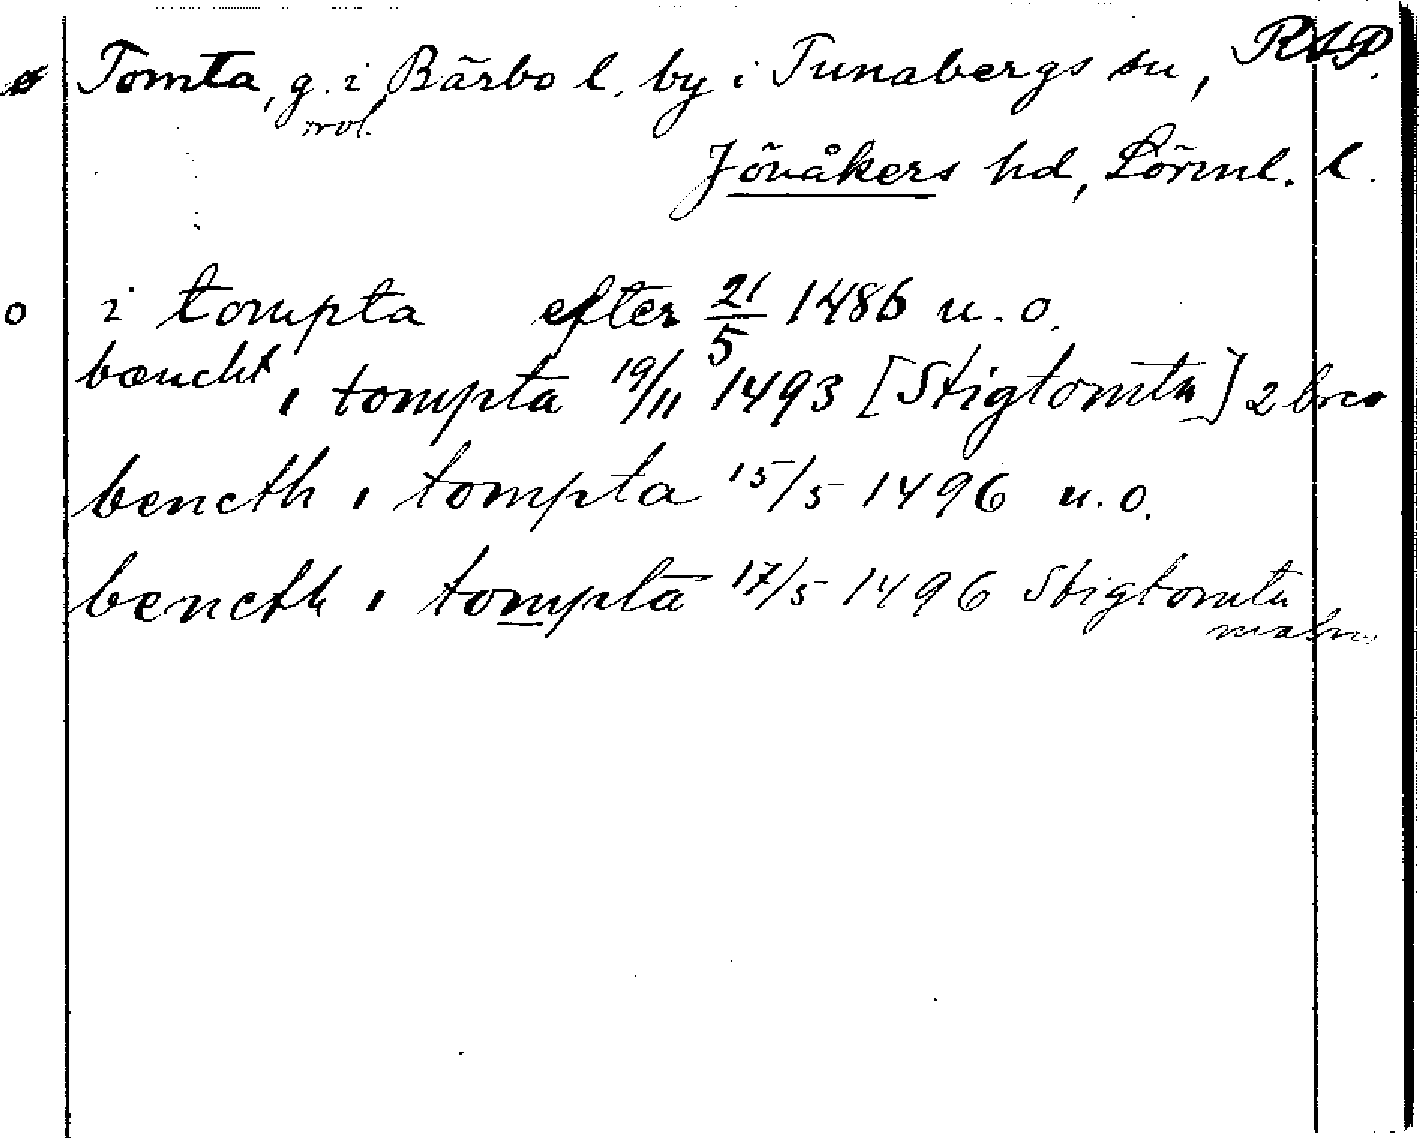 Tomta, g. i Bärbo l. by i Tunabergs sn, RAP.
trol.
Jönåkers hd, Sörml. l.
o i tompta efter 21/5 1486 u. o.
bæncht i tompta 19/11 1493 [Stigtomta] 2 brev
bencth i tompta 15/5 1496 u. o.
bencth i tompta 17/5 1496 Stigtomta